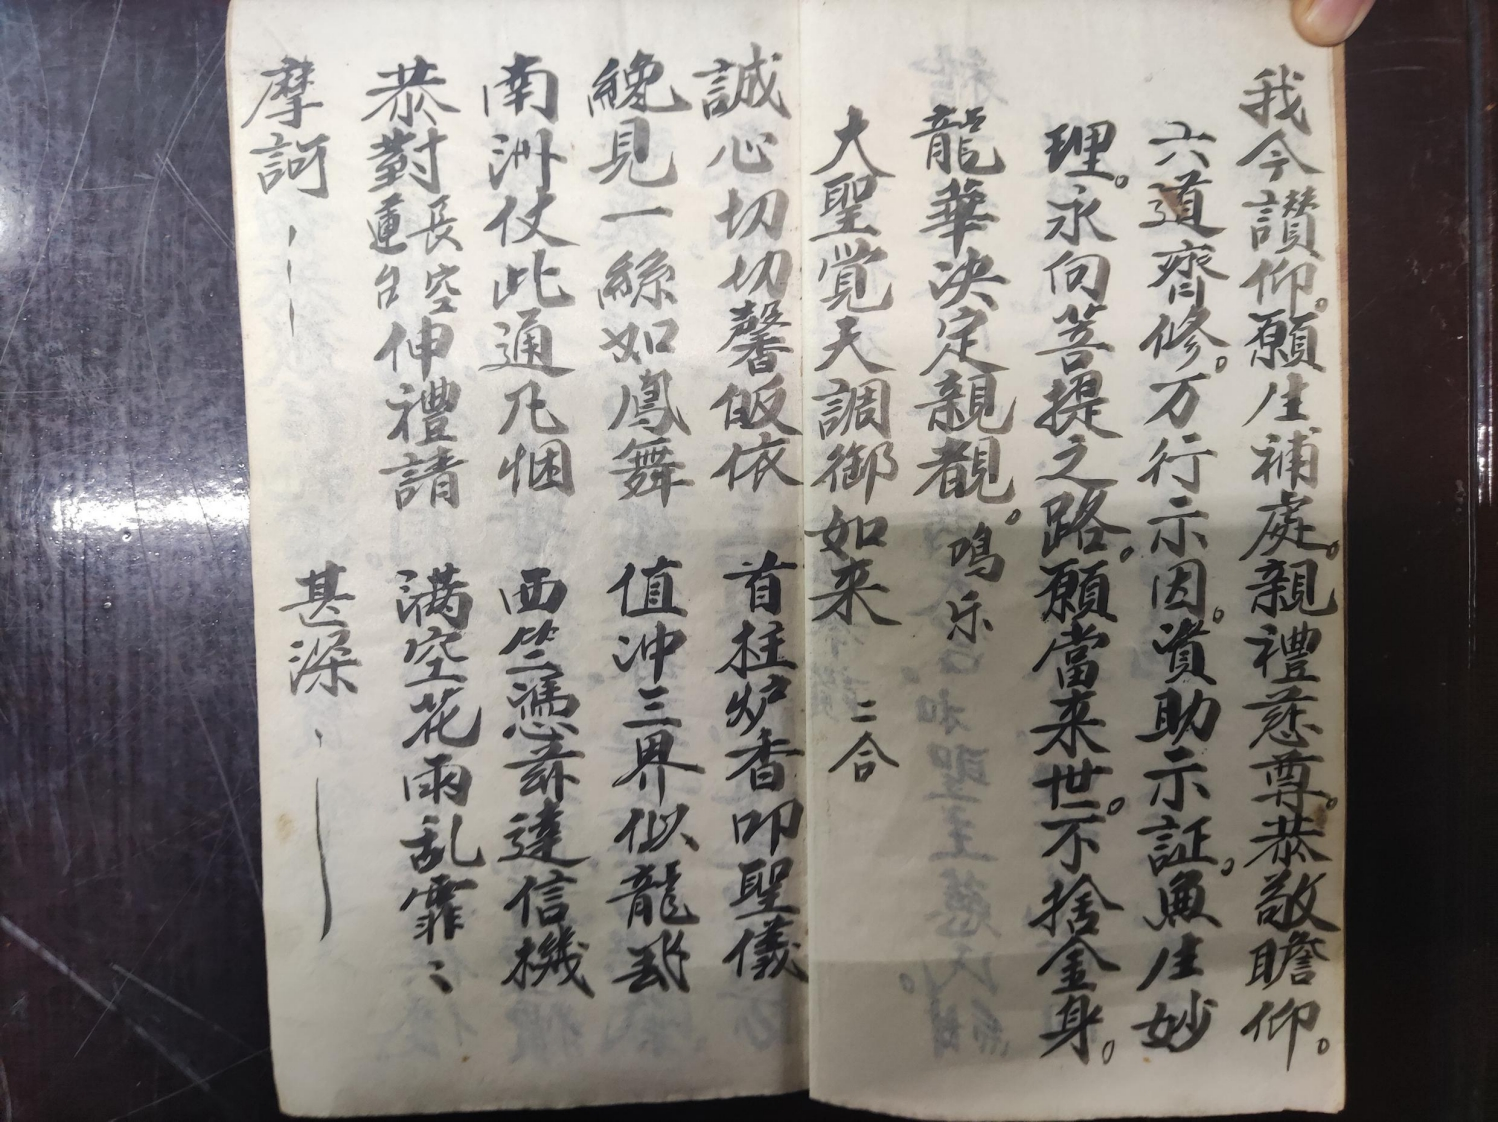 我今讚仰。願生補處。親禮慈尊。恭敬瞻仰。
六道齊修。万行示因。資助示証。無生妙
理。永向菩提之路。願當来世。不捨金身。
龍華決定親覩。鳴乐
大聖覚天調御如来 二合
誠心切切馨皈依 首拄炉香叩聖儀
纔見一絲如鳳舞 值冲三界似龍飛
南洲仗此通凡悃 西竺憑斯達信機
恭對長空運台伸禮請 满空花雨乱霏〻
摩訶 甚深